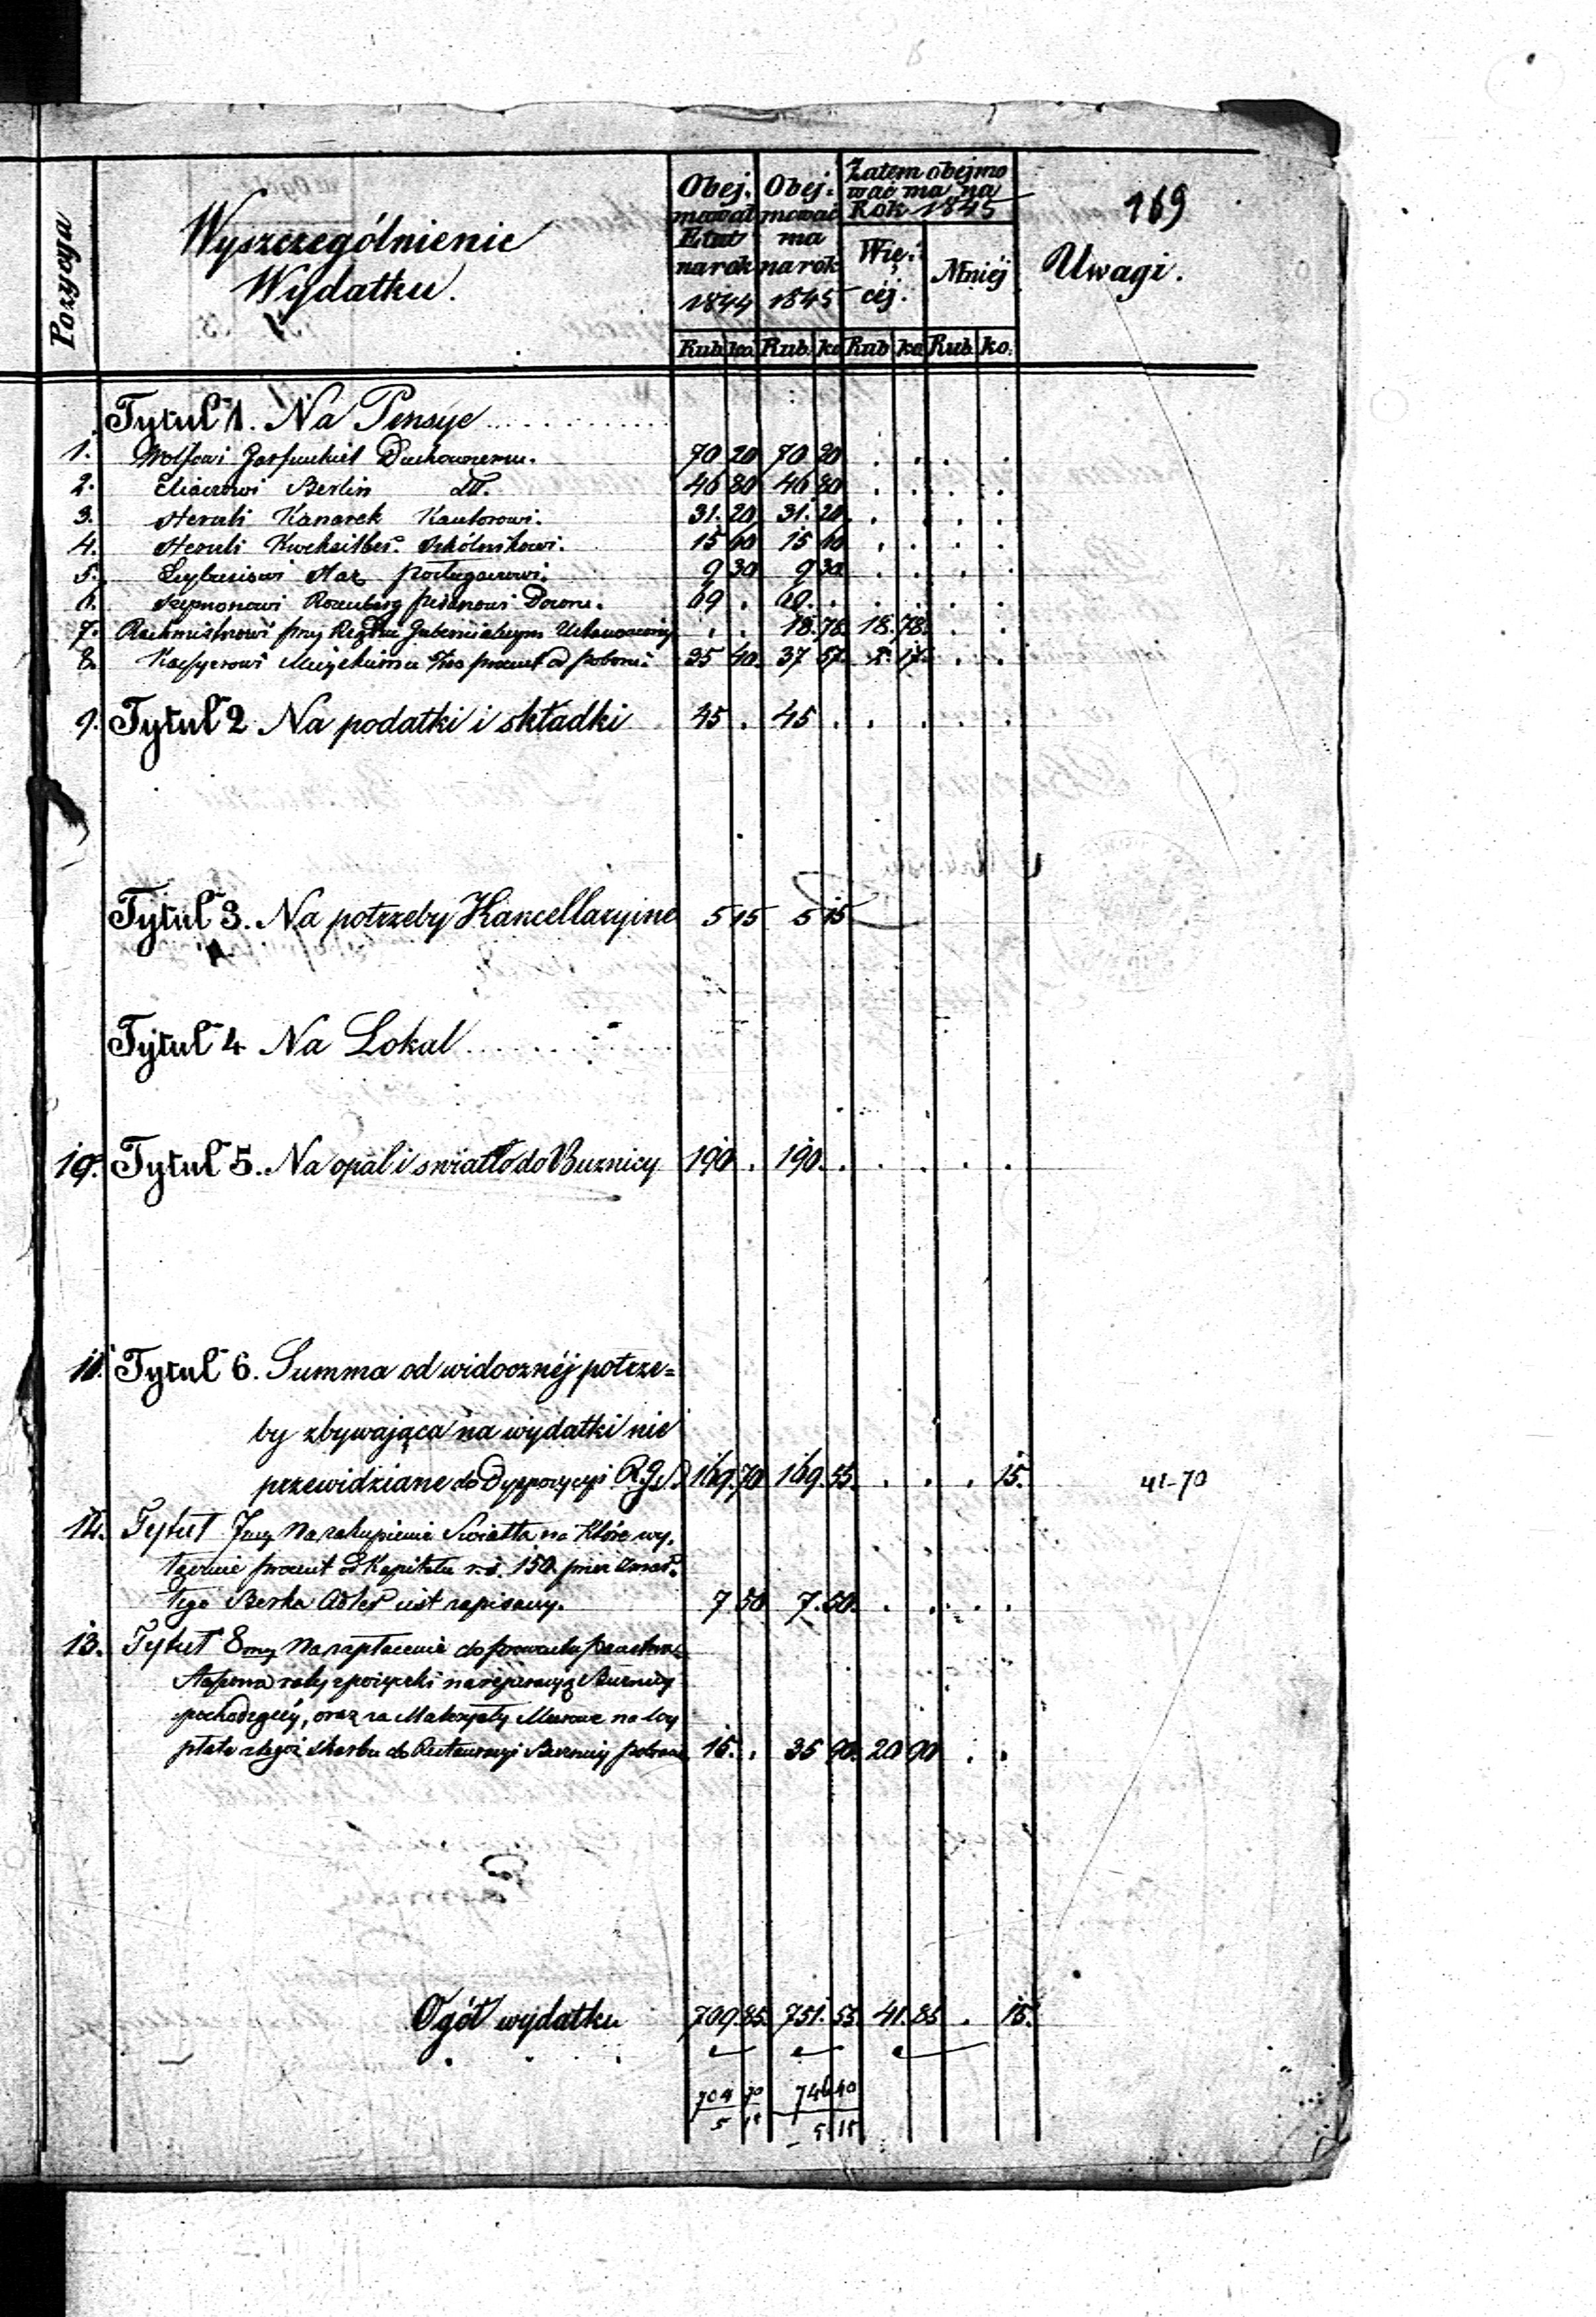 169
Pozycya
Wyszczególnienie
Wydatku.
Obej-
mował
Etat
na rok
1844
Obej-
mować
ma
na rok
1845
Zatem obejmo
wać ma na
Rok 1845
Wię-
céj.
Mniéj
Uwagi.
Rub. ko. Rub. ko Rub ko Rub. ko.
Tytuł 1. Na Pensye
1. Wolfowi Duchownemu. 70 20 70 20
2. Berlin dtt. 46 80 46 80
3. Herszli Kanarek Kantorowi. 31. 20 31. 20
4. Herszli Szkólnikowi. 15 60 15 60
5. 9 30 9 30
6. Szymonowi Rozenberg Dozoru. 69 . 69 .
7. Rachmistrzowi przy Gubernialnym . . 18. 78. 18. 78.
8. Kassyerowi procent od 35 40. 37 57. 2. 17.
9. Tytuł 2. Na podatki i składki 45 . 45 .
Tytuł 3. Na potrzeby Kancellaryine 5 15 5 15
Tytuł 4 Na Lokal
10. Tytuł 5. Na opał i swiatło do Buznicy 190 . 190. .
11. Tytuł 6. Summa od widocznéj potrze=
by zbywająca na wydatki nie
przewidziane do Dyspozycyi R. G. 169. 70 169. 55. . . . 15. 41-70
12. Tytuł 7my Na zakupienie Swiatła na które wy.
procent od Kapitału r.s. 150. przez
tego Berka Adler iest zapisany. 7 50 7. 50.
13. Tytuł 8my Na zapłacenie do
raty pożyczki na reparacyą Buznicy
oraz za Materyały
do Restauracyi Buznicy 15. . 35 90. 20 90
Ogół wydatku 709. 85. 751. 55. 41. 85 . 15.
704 70 746 40
5 15 5 15